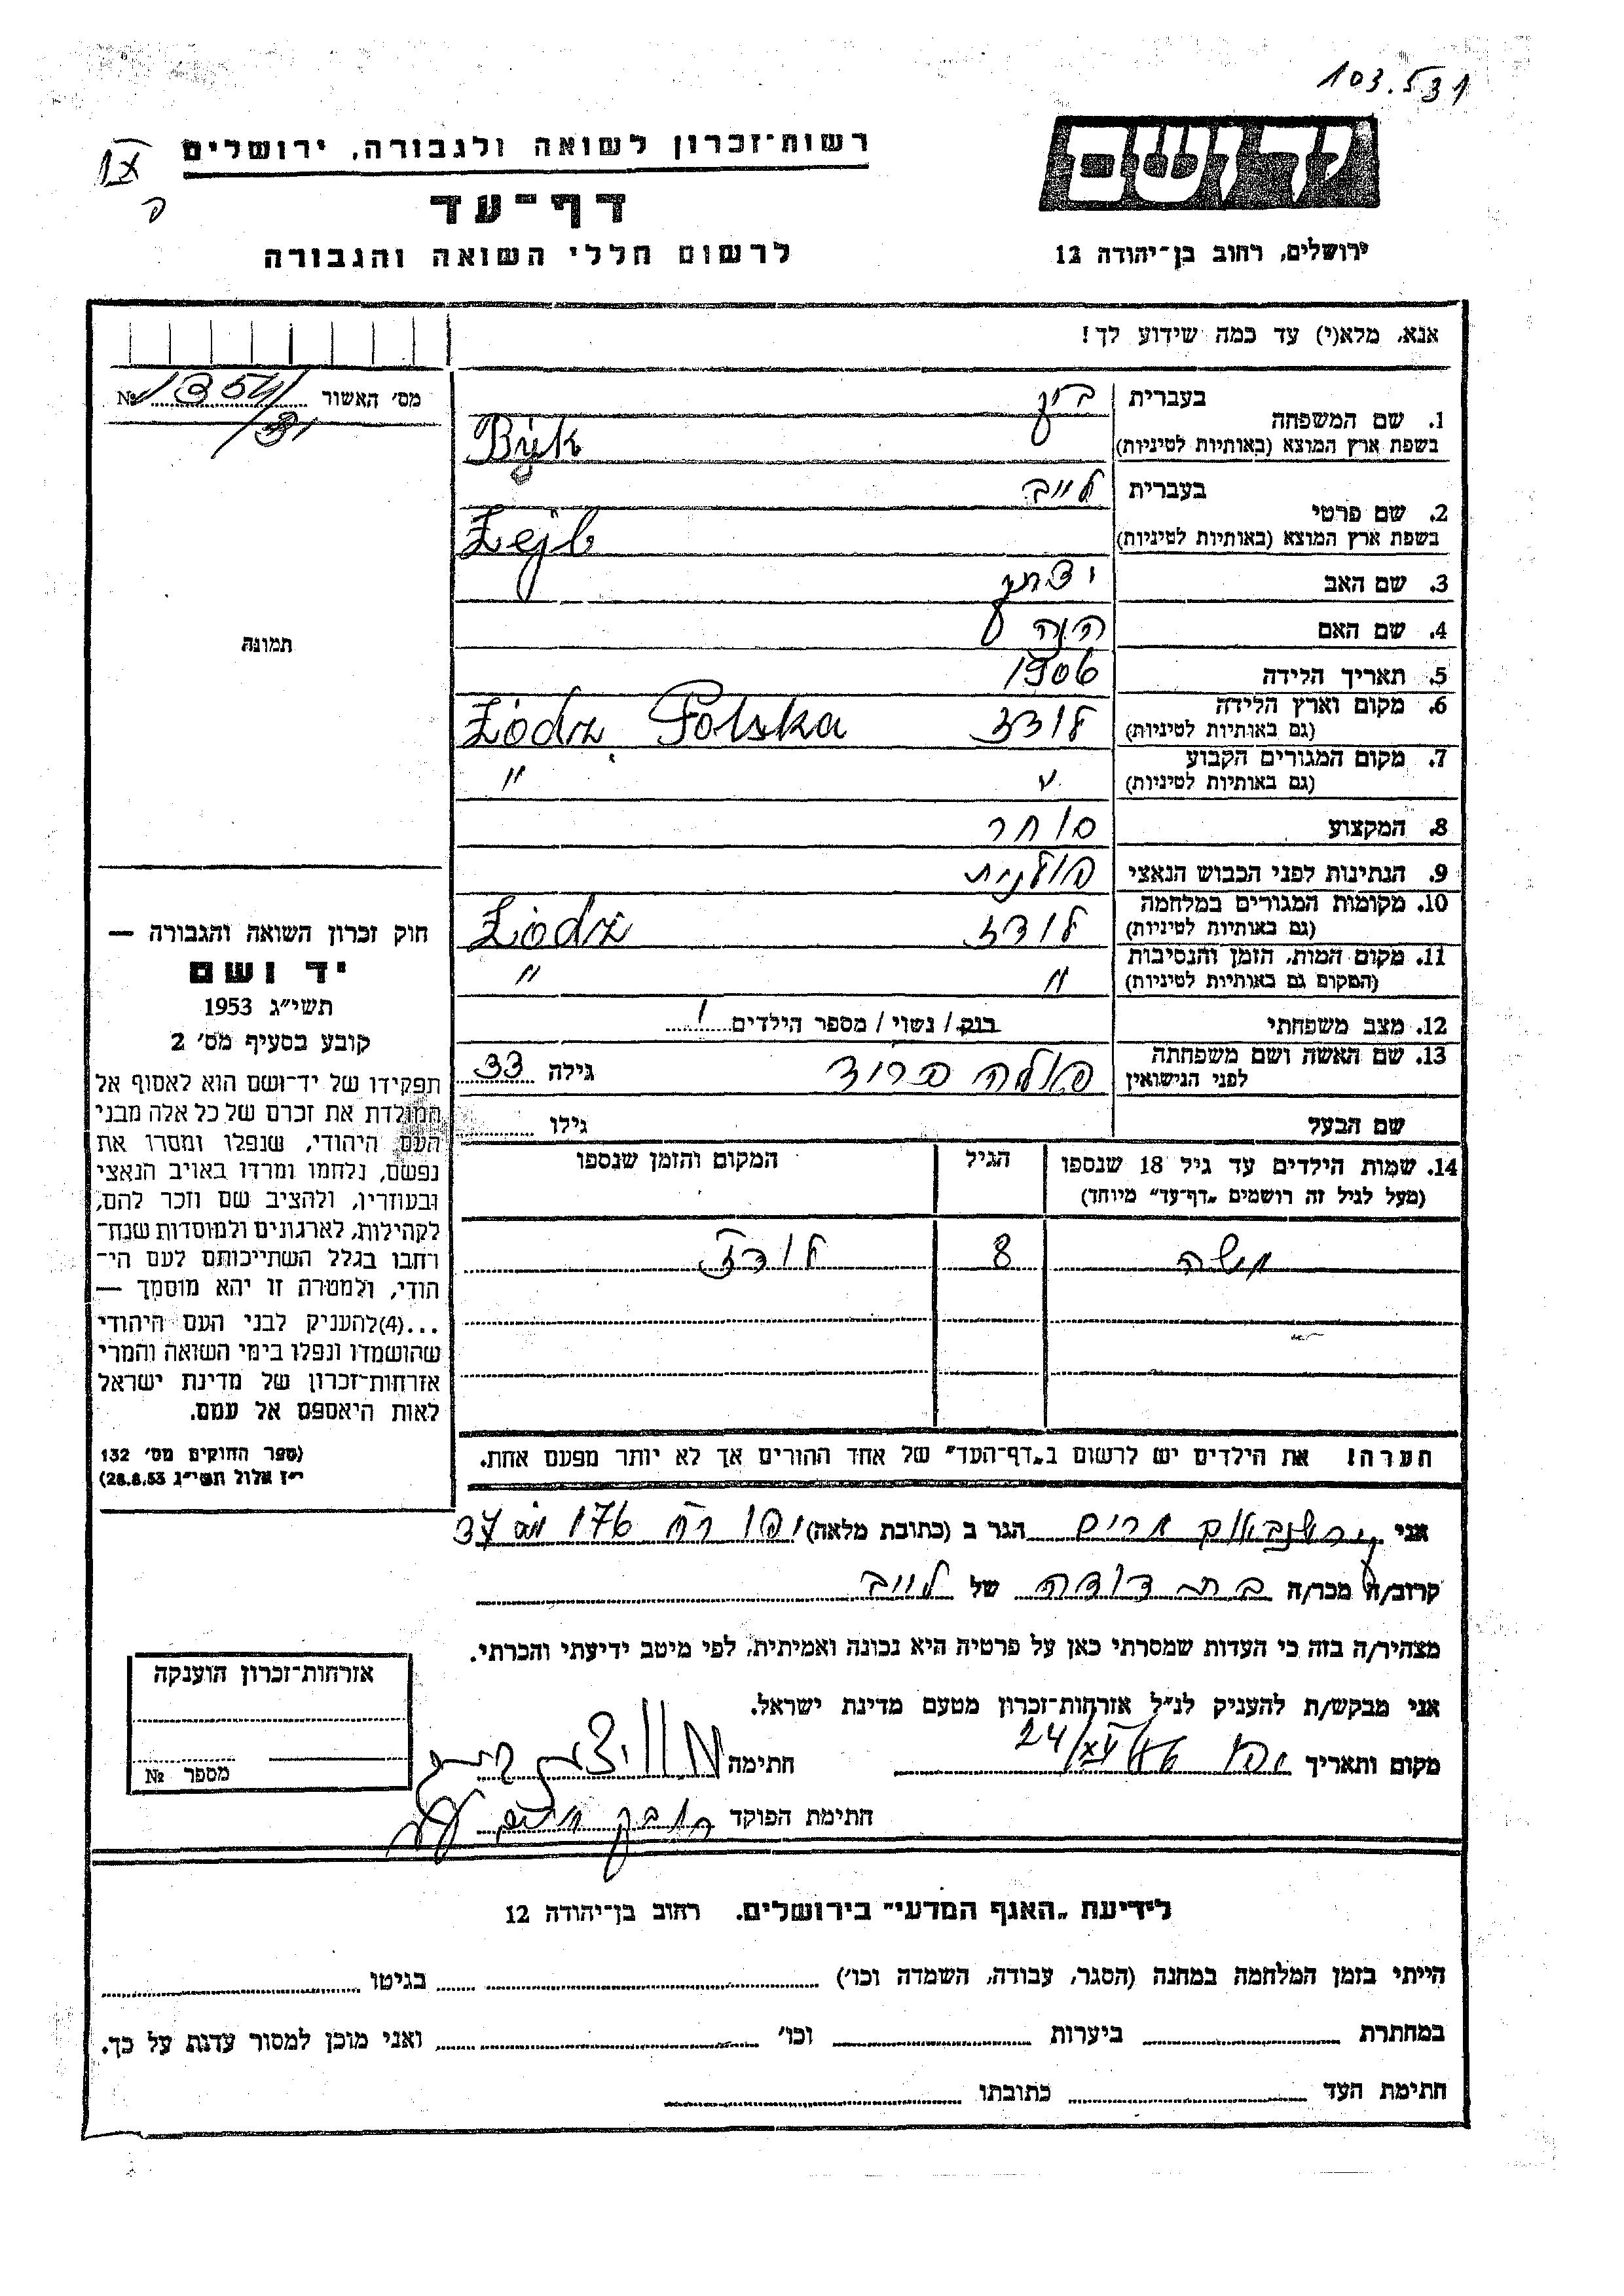 103.531
רשות־זכרון לשואה ולגבורה, ירושלים
דף־עד
לרשום חללי השואה והגבורה
יד ושם
ירושלים, רחוב בן־יהודה 12
אנא, מלא(י) עד כמה שידוע לך!
מס׳ האשור № 1354/31
1. שם המשפחה בעברית
בשפת ארץ המוצא (באותיות לטיניות) Bijk
2. שם פרטי בעברית לייב
בשפת ארץ המוצא (באותיות לטיניות) Lejb
3. שם האב יצחק
4. שם האם חוה
5. תאריך הלידה 1906
6. מקום וארץ הלידה (גם באותיות לטיניות) לודז Łódz Polska
7. מקום המגורים הקבוע (גם באותיות לטיניות) " "
8. המקצוע סוחר
9. הנתינות לפני הכבוש הנאצי פולנית
10. מקומות המגורים במלחמה (גם באותיות לטיניות) לודז Łódz
11. מקום המות, הזמן והנסיבות (המקום גם באותיות לטיניות) " "
12. מצב משפחתי רווק / נשוי / מספר הילדים 1
13. שם האשה ושם משפחתה לפני הנישואין פולה ברוד גילה 33
שם הבעל גילו
14. שמות הילדים עד גיל 18 שנספו (מעל לגיל זה רושמים „דף־עד״ מיוחד) הגיל המקום והזמן שנספו
משה 8 לודז
הערה! את הילדים יש לרשום ב„דף־העד״ של אחד ההורים אך לא יותר מפעם אחת.
תמונה
חוק זכרון השואה והגבורה —
יד ושם
תשי״ג 1953
קובע בסעיף מס׳ 2
תפקידו של יד־ושם הוא לאסוף אל
המולדת את זכרם של כל אלה מבני
העם היהודי, שנפלו ומסרו את
נפשם, נלחמו ומרדו באויב הנאצי
ובעוזריו, ולהציב שם וזכר להם,
לקהילות, לארגונים ולמוסדות שנח־
רחבו בגלל השתייכותם לעם הי־
הודי, ולמטרה זו יהא מוסמך —
...(4)להעניק לבני העם היהודי
שהושמדו ונפלו בימי השואה והמרי
אזרחות־זכרון של מדינת ישראל
לאות היאספם אל עמם.
(ספר החוקים מס׳ 132
י״ז אלול תשי״ג 28.8.53)
אני הגר ב (כתובת מלאה) יפו רח 176 מס 37
קרוב/ה מכר/ה בת דודה של לייב
מצהיר/ה בזה כי העדות שמסרתי כאן על פרטיה היא נכונה ואמיתית, לפי מיטב ידיעתי והכרתי.
אני מבקש/ת להעניק לנ״ל אזרחות־זכרון מטעם מדינת ישראל.
מקום ותאריך יפו חתימה
חתימת הפוקד
אזרחות־זכרון הוענקה
מספר №
לידיעת „האגף המדעי״ בירושלים. רחוב בן־יהודה 12
הייתי בזמן המלחמה במחנה (הסגר, עבודה, השמדה וכו׳) בגיטו
במחתרת ביערות וכו׳ ואני מוכן למסור עדות על כך.
חתימת העד כתובתו